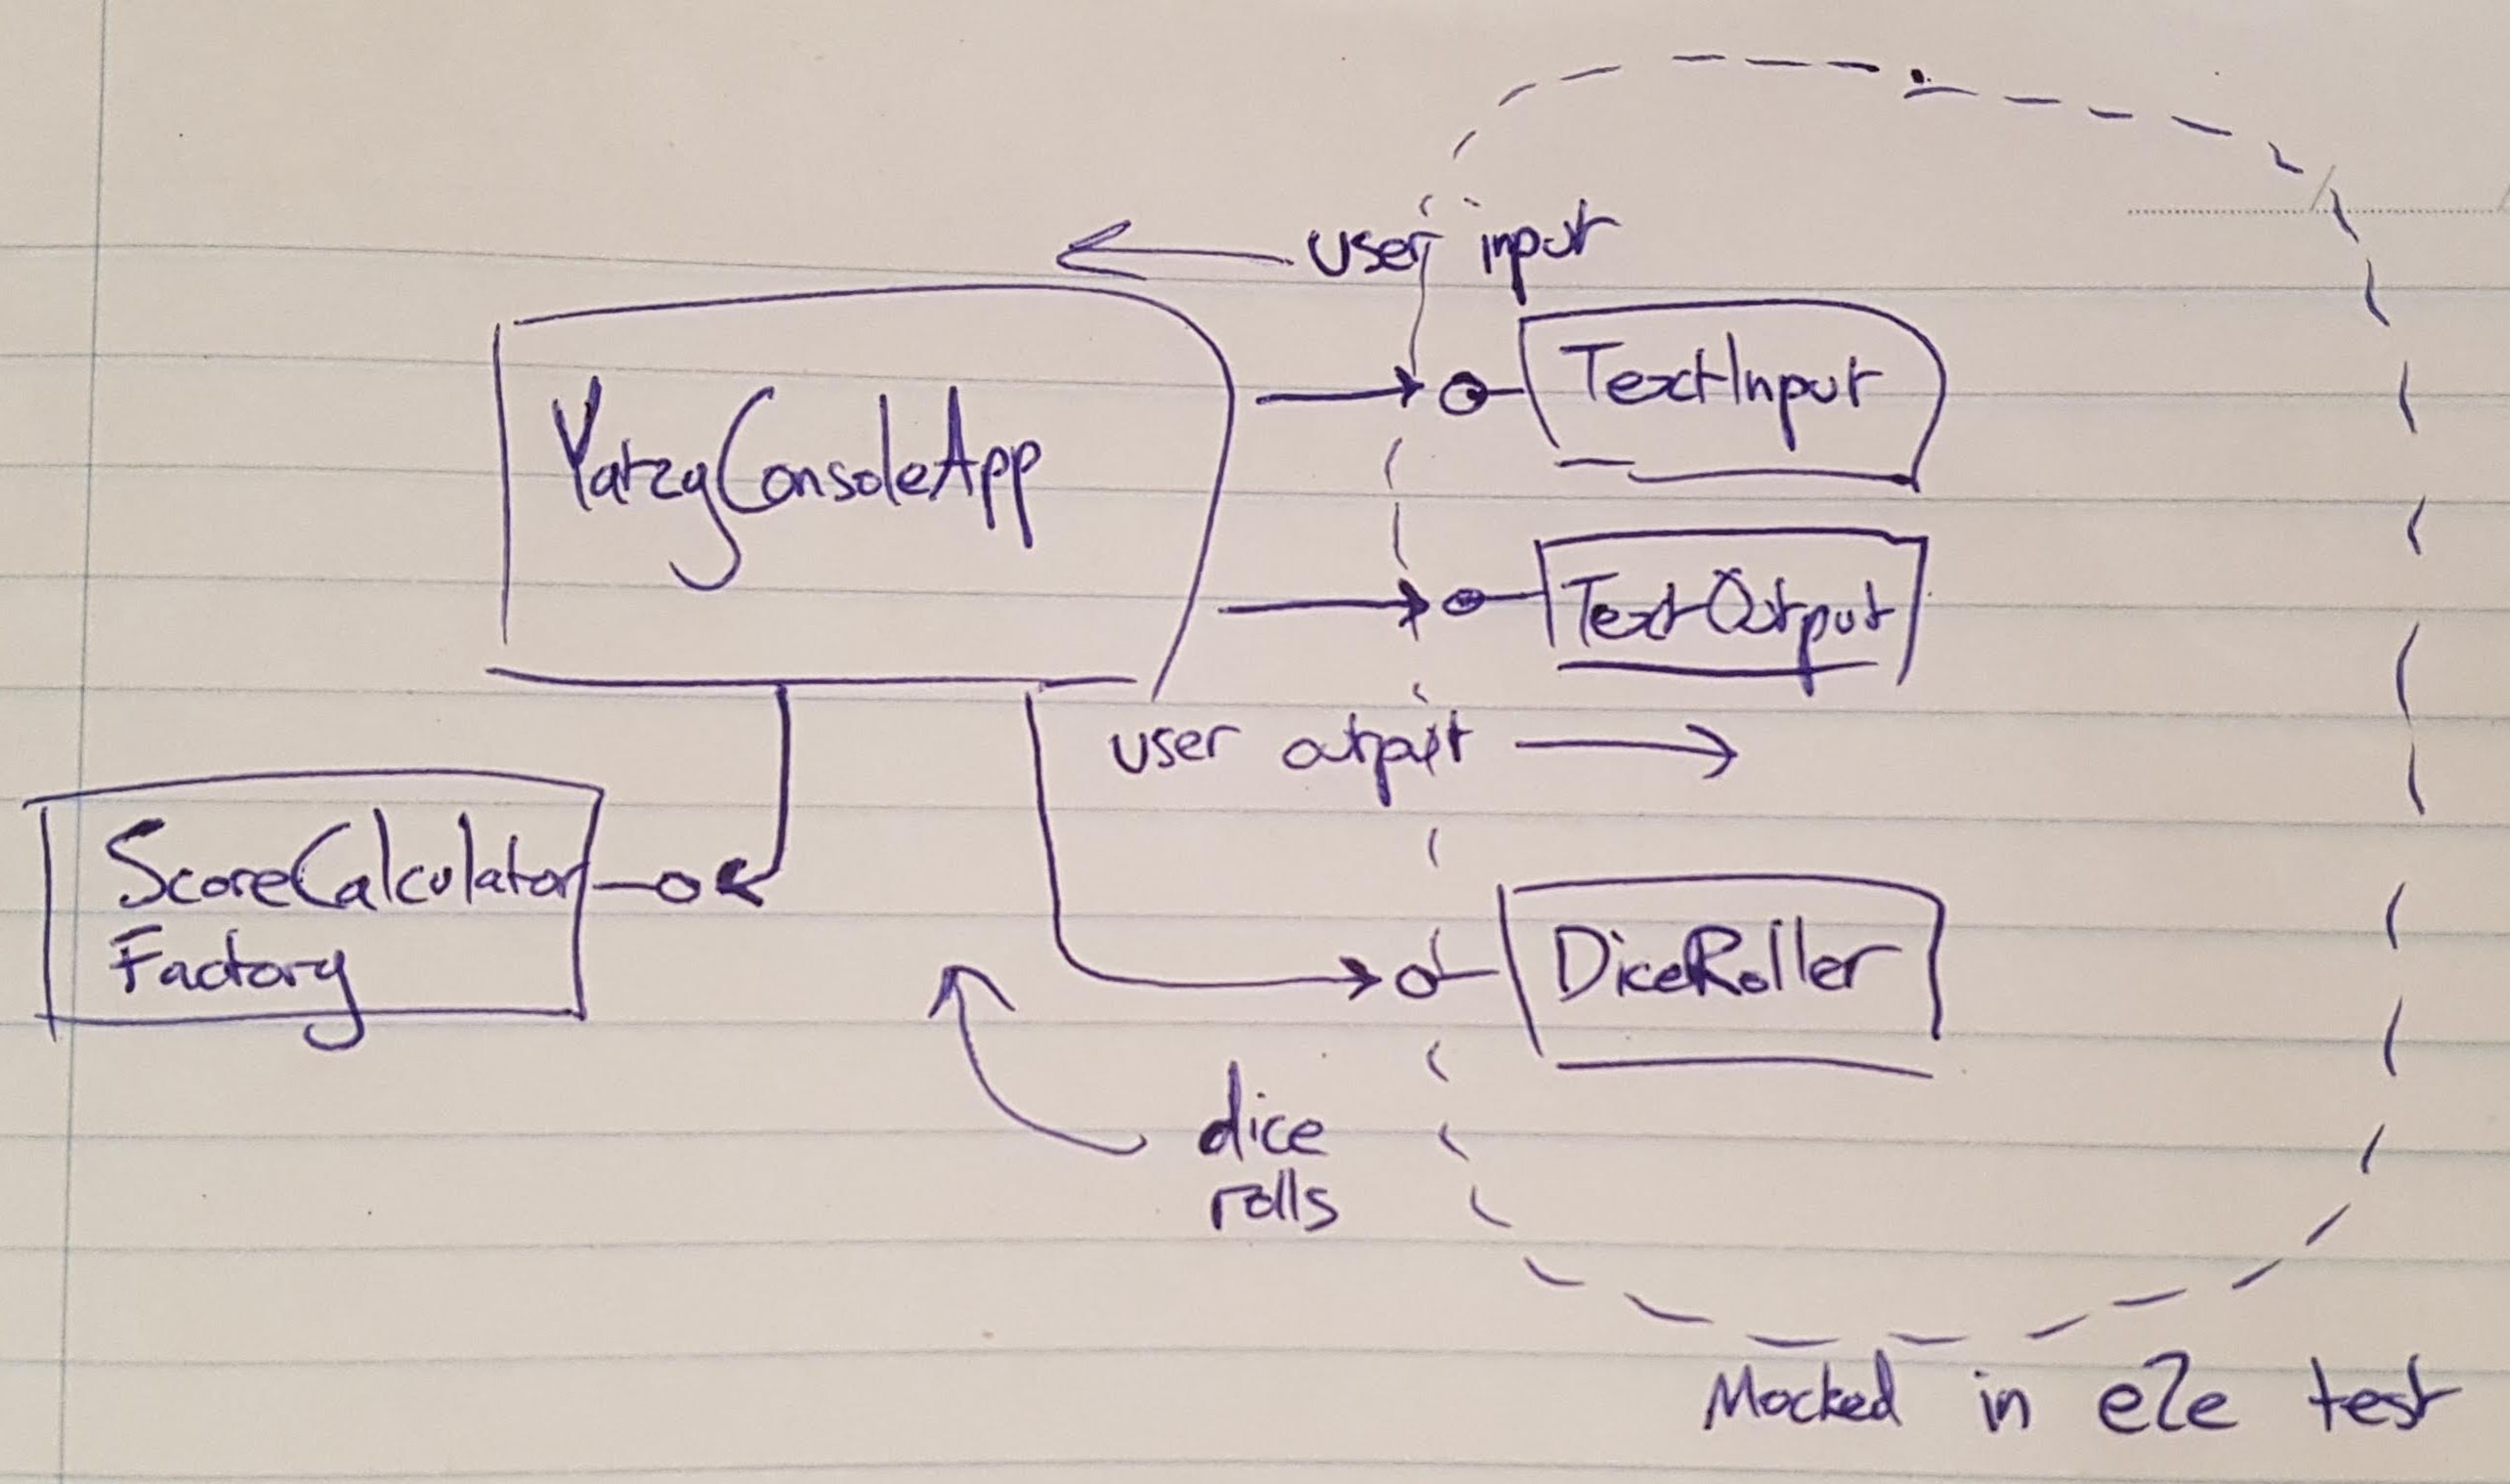 user input
TextInput
YatzyConsoleApp
TextOutput
user output
ScoreCalculator
Factory
DiceRoller
dice
rolls
Mocked in e2e test